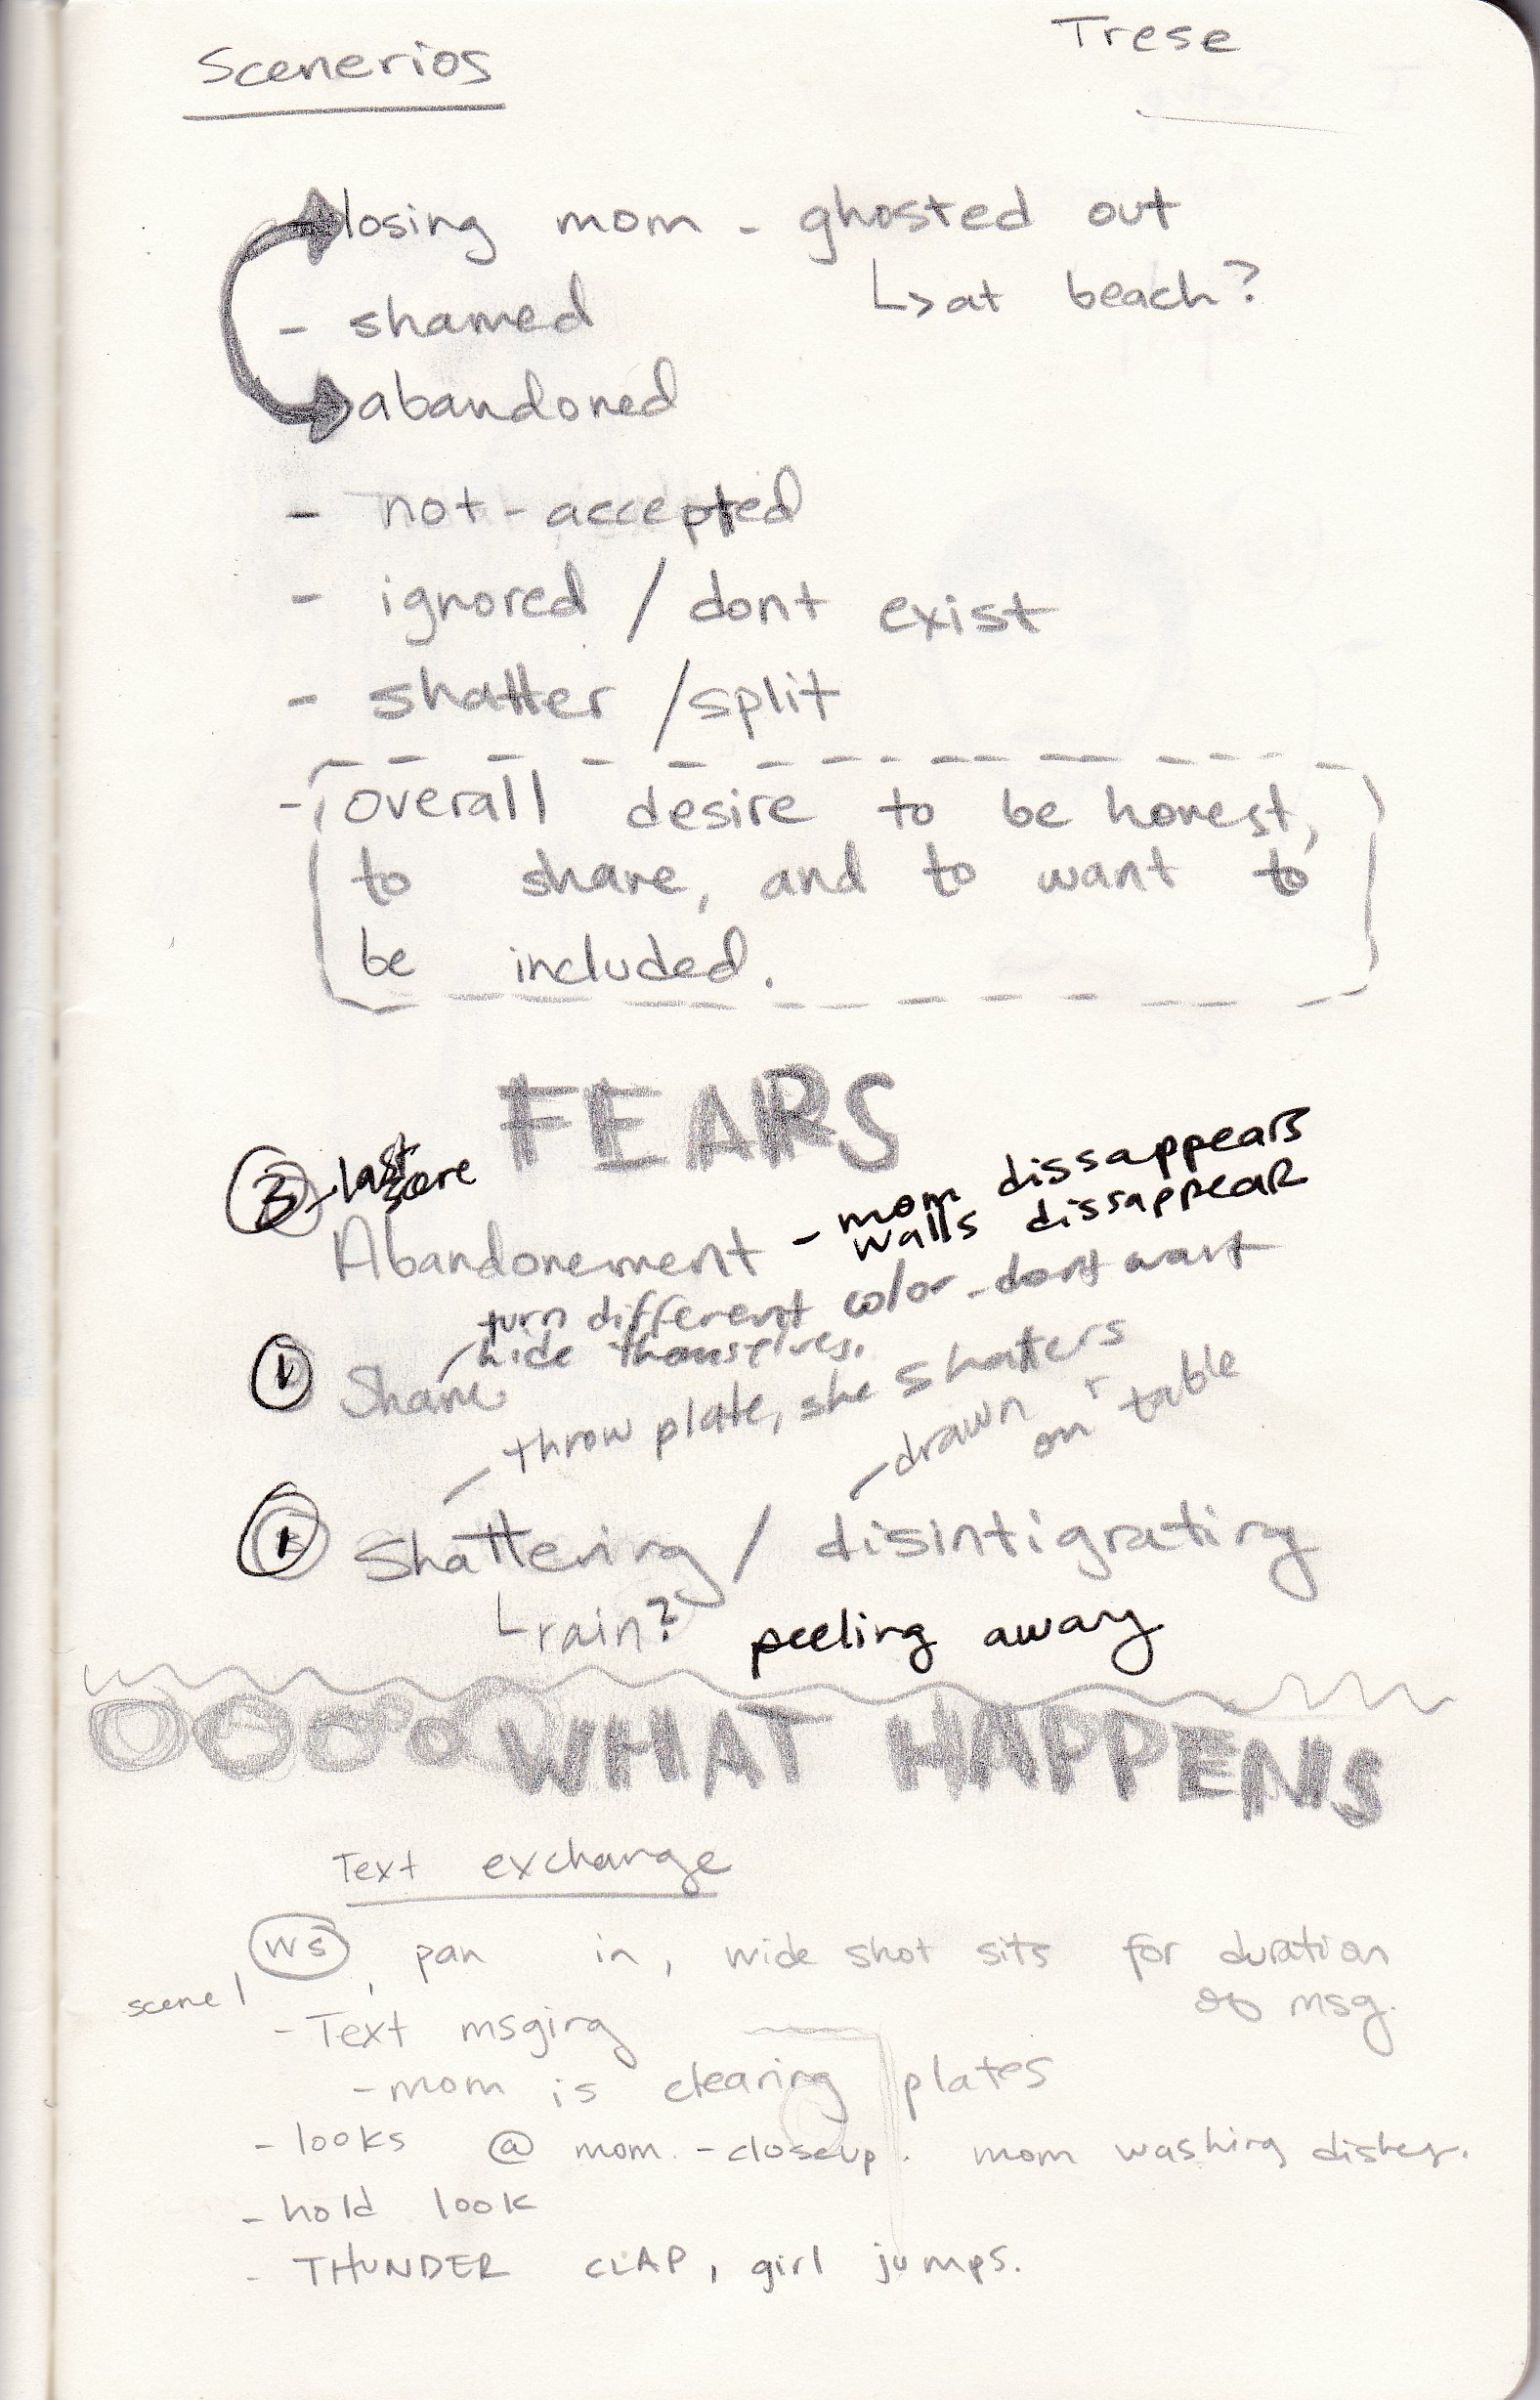 Scenerios
Trese
losing mom - ghosted out
↳ at beach?
- shamed
abandoned
- not-accepted
- ignored / dont exist
- shatter / split
- overall desire to be honest,
to share, and to want to
be included.
FEARS
3 - last
Abandonement - mom dissappears
walls dissappear
turn different color - dont want
hide themselves.
Shame
- throw plate, she shaters
- drawn on table
Shattering / disintigrating
↳ rain? peeling away
WHAT HAPPENS
Text exchange
WS, pan in, wide shot sits for duration
of msg.
scene 1
- Text msging
- mom is clearing plates
- looks @ mom. - closeup. mom washing dishes.
- hold look
- THUNDER CLAP, girl jumps.